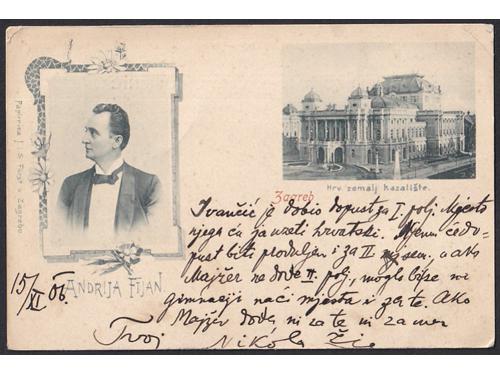 Papirnica J. i S. Fürst u Zagrebu
Hrv. zemalj. kazalište.
Zagreb.
ANDRIJA FIJAN
15/XI 06.
Ivančić je dobio dopust za I. polj. Mjesto
njega ću ja uzeti hrvatski. Njemu će do-
pust biti produljen i za II
Majžer ne dođe II polj, moglo bi se na
gimnaziji naći mjesta i za te. Ako
Majžer dođe, ni za te ni za me
Tvoj
Nikola